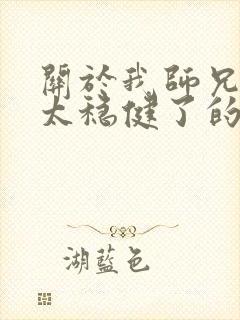 關於我師兄
太穩健了的
湖藍色